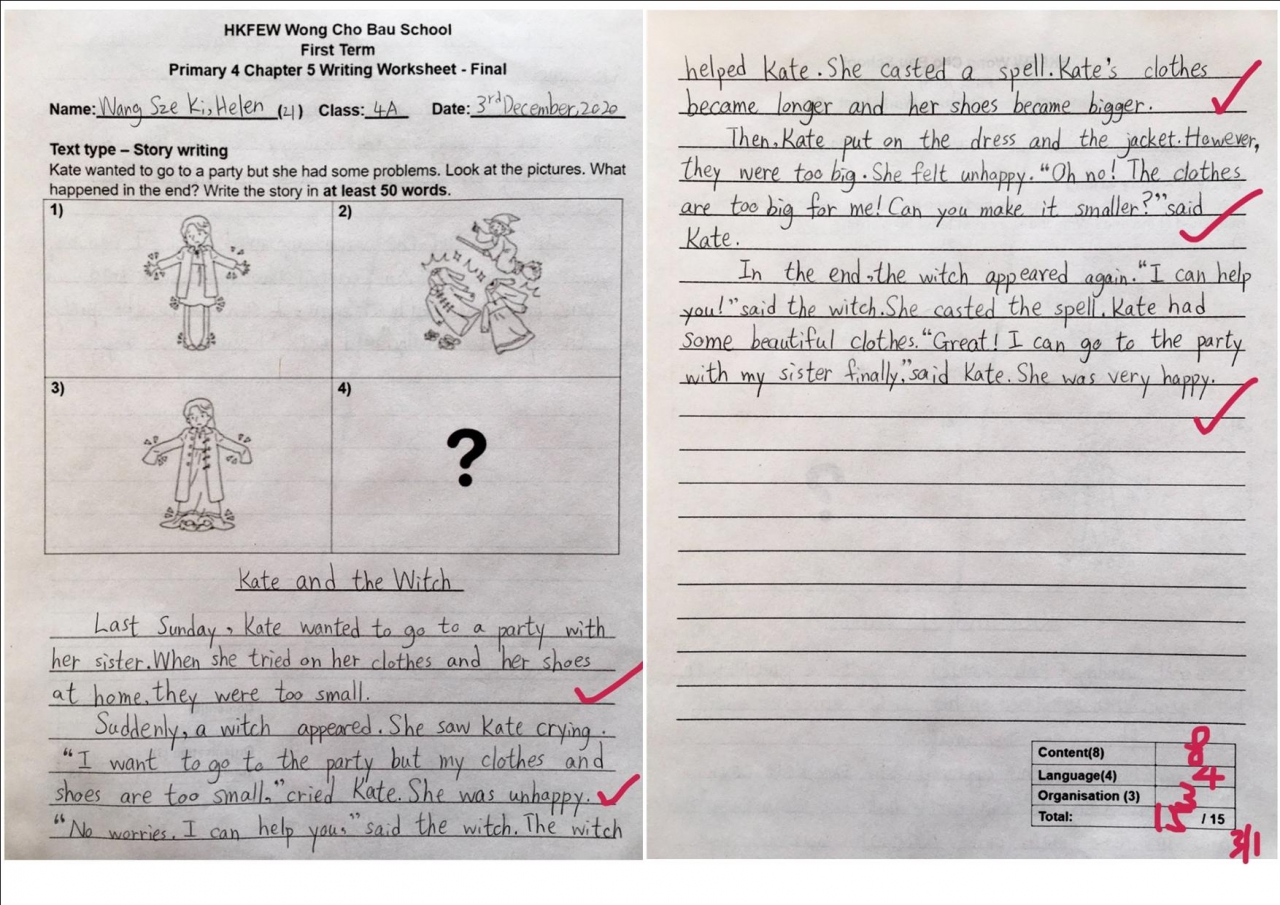 HKFEW Wong Cho Bau School
First Term
Primary 4 Chapter 5 Writing Worksheet - Final
Name: Wang Sze Ki, Helen (21) Class: 4A Date: 3rd December, 2020
Text type – Story writing
Kate wanted to go to a party but she had some problems. Look at the pictures. What
happened in the end? Write the story in at least 50 words.
1)
2)
3)
4)
?
Kate and the Witch
Last Sunday, Kate wanted to go to a party with
her sister. When she tried on her clothes and her shoes
at home, they were too small.
Suddenly, a witch appeared. She saw Kate crying.
“I want to go to the party but my clothes and
shoes are too small,” cried Kate. She was unhappy.
“No worries. I can help you,” said the witch. The witch
helped Kate. She casted a spell. Kate's clothes
became longer and her shoes became bigger.
Then, Kate put on the dress and the jacket. However,
they were too big. She felt unhappy. “Oh no! The clothes
are too big for me! Can you make it smaller?” said
Kate.
In the end, the witch appeared again. “I can help
you!” said the witch. She casted the spell. Kate had
some beautiful clothes. “Great! I can go to the party
with my sister finally,” said Kate. She was very happy.
Content(8) 8
Language(4) 4
Organisation (3) 3
Total: 15 / 15
3/1